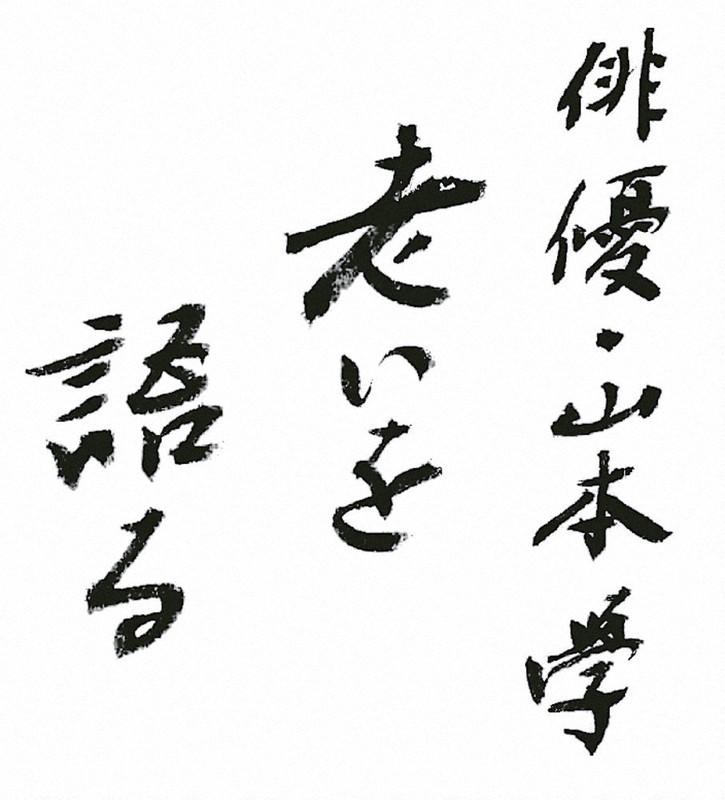 俳優・山本學
老いを
語る